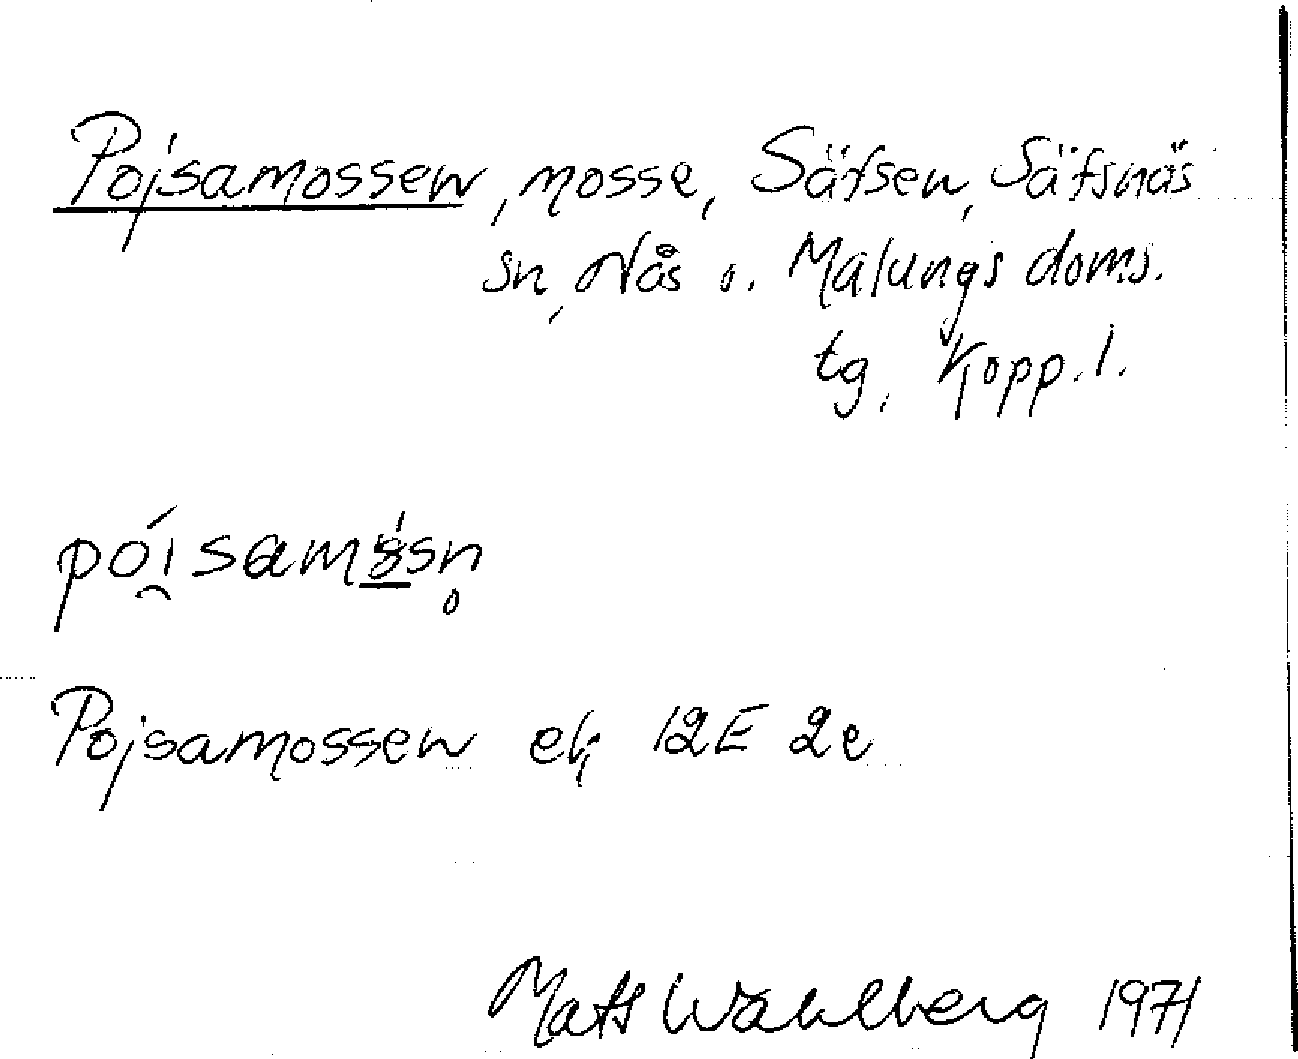 Pojsamossen, mosse, Säfsen, Säfsnäs
sn, Nås o. Malungs doms.
tg, Kopp. l.
Pojsamossen ek 12E 2e
Mats Wahlberg 1971